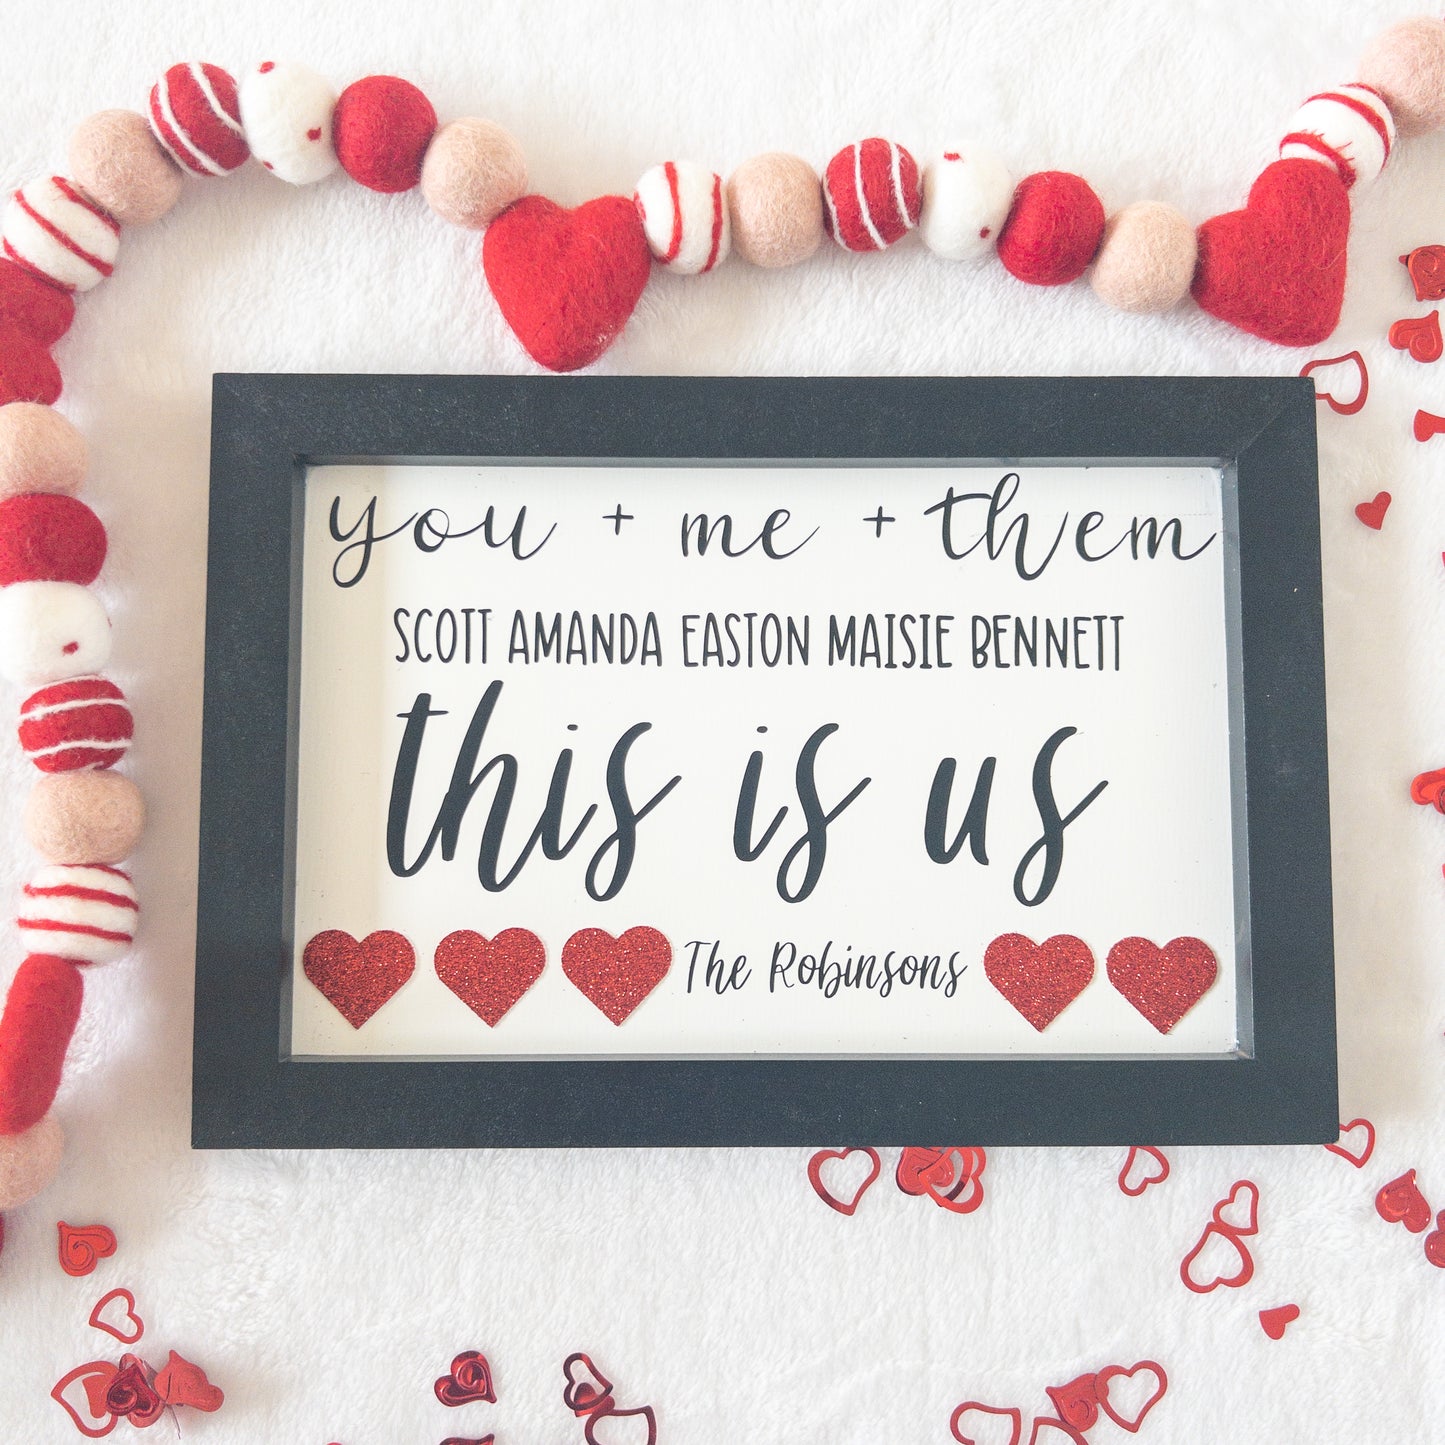 you + me + them
SCOTT AMANDA EASTON MAISIE BENNETT
this is us
The Robinsons